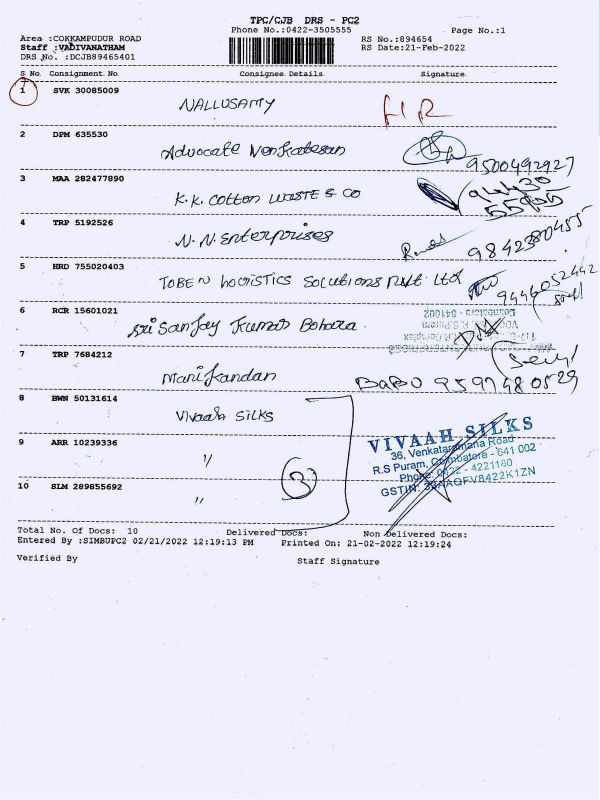 TPC/CJB DRS - PC2
Phone No.:0422-3505555 Page No.:1
Area :COKKAMPUDUR ROAD RS No.:894654
Staff :VADIVANATHAM RS Date:21-Feb-2022
DRS No. :DCJB89465401
S No. Consignment No Consignee Details Signature
1 SVK 30085009
NALLUSAMY
2 DPM 635530
Advocate Venkatesan 9500492927
3 MAA 282477890
K.K. Cotton WASTE & CO 94430
4 TRP 5192526
N.N. Enterprises 9842380455
5 HRD 755020403
TOBEN LOGISTICS SOLUTIONS PVT. Ltd 9446052442
6 RCR 15601021
Sri Sanjay Kumar Bohara
7 TRP 7684212
Manikandan BABU 9597480529
8 BWN 50131614
Vivaah SILKS
VIVAAH SILKS
36, Venkataramana Road
R.S Puram, Coimbatore - 641 002
Phone: 0422 - 4221180
9 ARR 10239336
"
3
10 SLM 289855692
"
Total No. Of Docs: 10 Delivered Docs: Non Delivered Docs:
Entered By :SIMBUPC2 02/21/2022 12:19:13 PM Printed On: 21-02-2022 12:19:24
Verified By Staff Signature